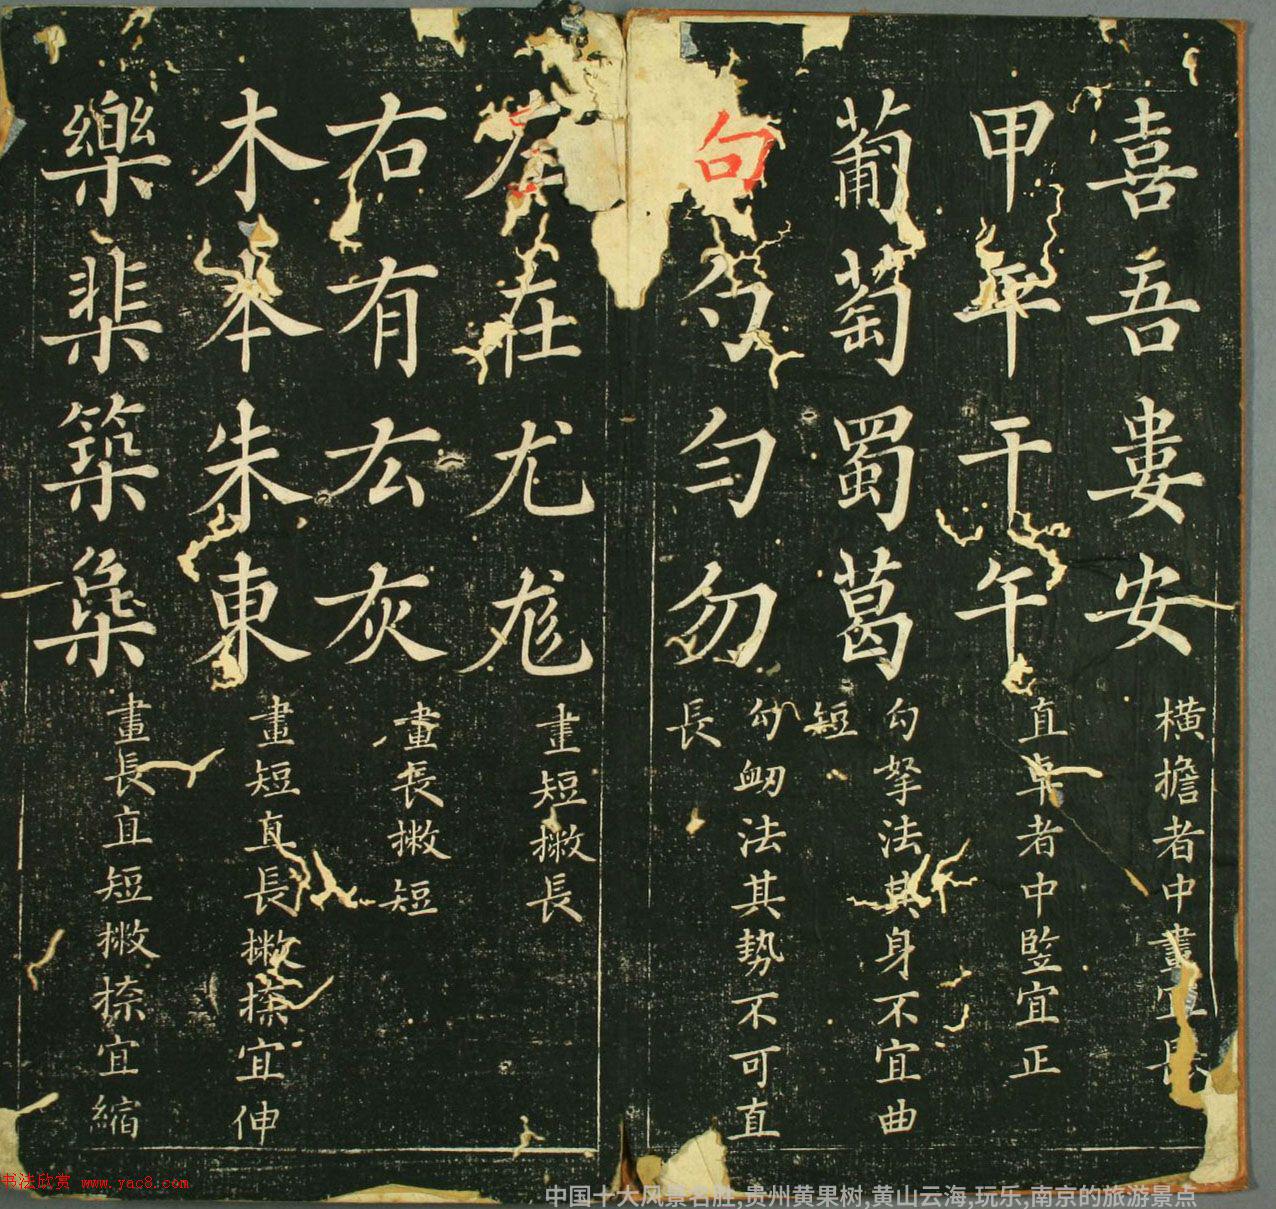 喜吾婁安
横擔者中畫宜長
甲平干午
直卓者中竪宜正
葡萄蜀葛
勾拏法其身不宜曲短
句勺勻勿
勾法其势不可直長
左在尤尨
畫短撇長
右有厷灰
畫長撇短
木本朱東
畫短直長撇捺宜伸
樂棐築槼
畫長直短撇捺宜縮
书法欣赏 www.yac8.com
中国十大风景名胜,贵州黄果树,黄山云海,玩乐,南京的旅游景点